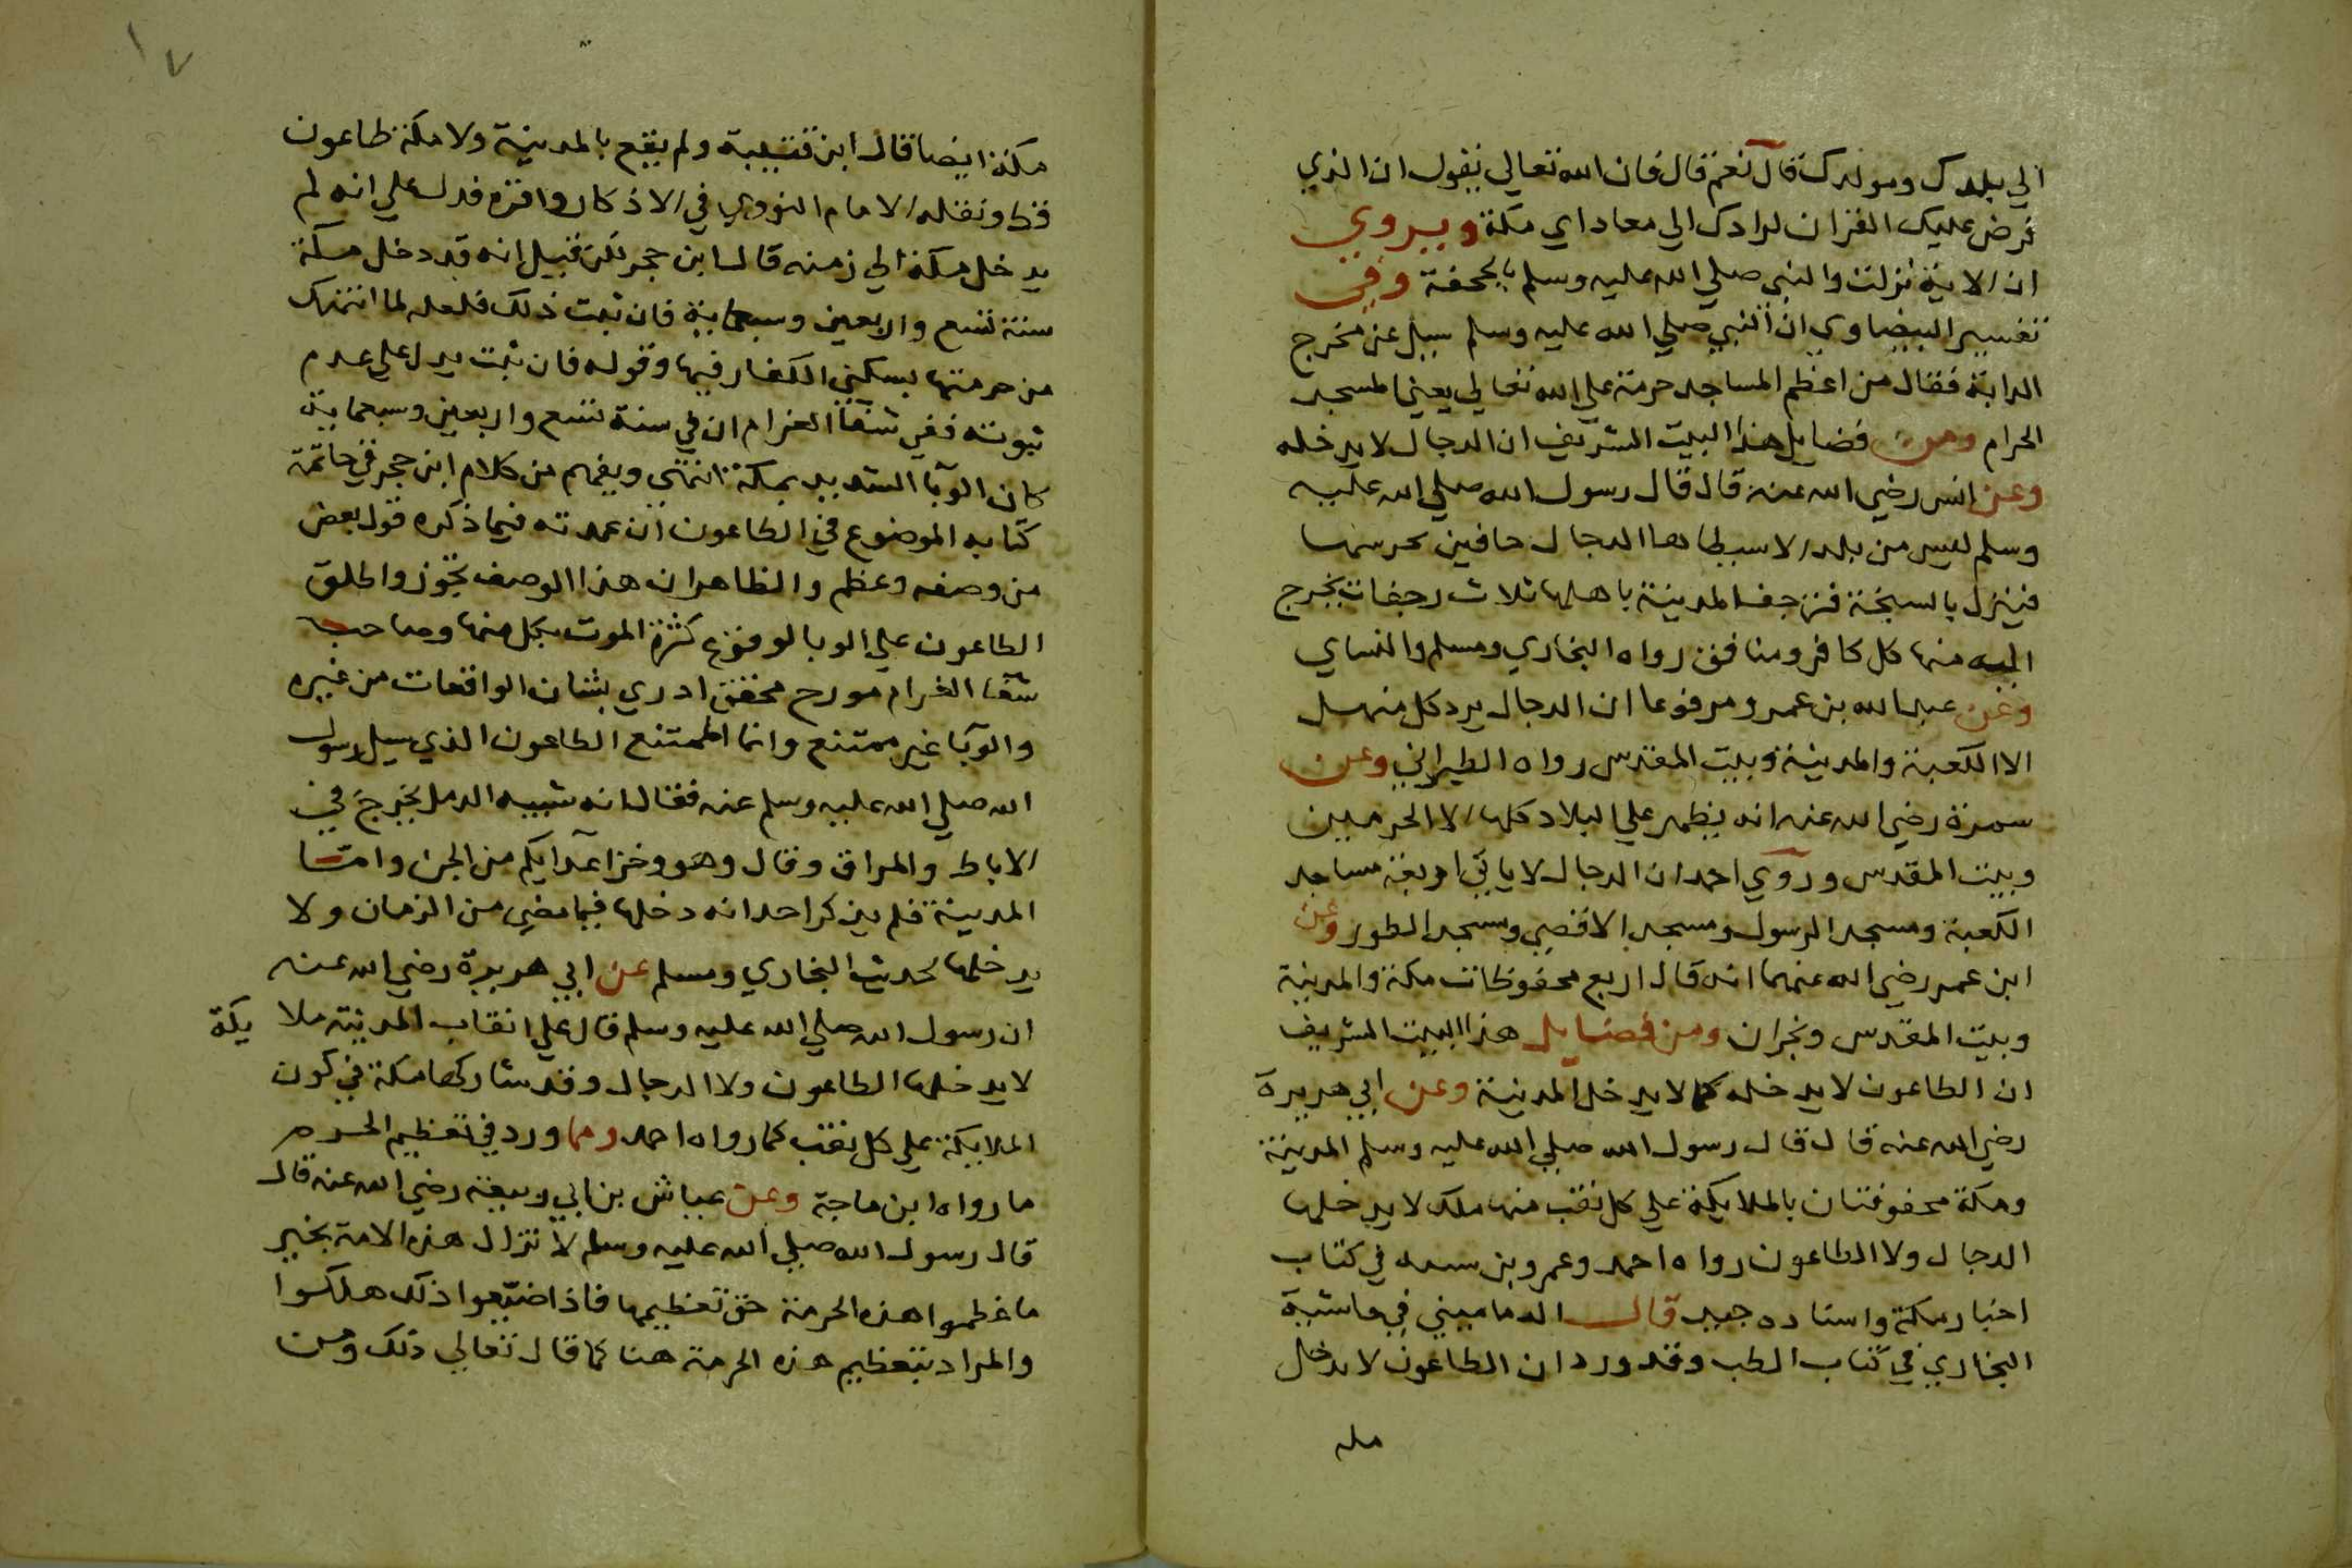 الي بلدك ومولدك قال نعم قال فان الله تعالي يقول ان الذي
فرض عليك القران لرادك الي معاد اي مكة ويروي
ان الاية نزلت والنبي صلي الله عليه وسلم بالجحفة وفي
تفسير البيضاوي ان النبي صلي الله عليه وسلم سيل عن مخرج
الدابة فقال من اعظم المساجد حرمة علي الله تعالي يعني المسجد
الحرام ومن فضايل هذا البيت الشريف ان الدجال لا يدخله
وعن انس رضي الله عنه قال قال رسول الله صلي الله عليه
وسلم ليس من بلد الا سيطاها الدجال حافين يحرسها
فينزل بالسبخة فترجف المدينة باهلها ثلاث رجفات يخرج
اليه منها كل كافر ومنافق رواه البخاري ومسلم والنساي
وعن عبد الله بن عمرو مرفوعا ان الدجال يرد كل منهل
الا الكعبة والمدينة وبيت المقدس رواه الطبراني وعن
سمرة رضي الله عنه انه يظهر علي البلاد كلها الا الحرمين
وبيت المقدس وروي احمد ان الدجال لا ياتي اربعة مساجد
الكعبة ومسجد الرسول ومسجد الاقصي ومسجد الطور وعن
ابن عمر رضي الله عنهما انه قال اربع محفوظات مكة والمدينة
وبيت المقدس ونجران ومن فضايل هذا البيت الشريف
ان الطاعون لا يدخله كما لا يدخل المدينة وعن ابي هريرة
رضي الله عنه قال قال رسول الله صلي الله عليه وسلم المدينة
ومكة محفوفتان بالملايكة علي كل نقب منها ملك لا يدخلها
الدجال ولا الطاعون رواه احمد وعمرو بن سبه في كتاب
اخبار مكة واسناده جيد قال الدماميني في حاشية
البخاري في كتاب الطب وقد ورد ان الطاعون لا يدخل
مكة
١٧
مكة ايضا قال ابن قتيبة ولم يقع بالمدينة ولا مكة طاعون
قط ونقله الامام النووي في الاذكار واقره فدل علي انه لم
يدخل مكة الي زمنه قال ابن حجر لكن قيل انه قد دخل مكة
سنة تسع واربعين وسبعماية فان ثبت ذلك فلعله لما انتهك
من حرمتها بسكني الكفار فيها وقوله فان ثبت يدل علي عدم
ثبوته ففي شفا الغرام ان في سنة تسع واربعين وسبعماية
كان الوبا الشديد بمكة انتهي ويفهم من كلام ابن حجر في خاتمة
كتابه الموضوع في الطاعون ان عمدته فيما ذكره قول بعض
من وصفه وعظم والظاهر ان هذا الوصف تجوز واطلق
الطاعون علي الوبا لوقوع كثرة الموت بكل منها وصاحب
شفا الغرام مورخ محقق ادري بشان الواقعات من غيره
والوبا غير ممتنع وانما الممتنع الطاعون الذي سيل رسول
الله صلي الله عليه وسلم عنه فقال انه شبيه الدمل يخرج في
الاباط والمراق وقال وهو وخز اعدايكم من الجن واما
المدينة فلم يذكر احد انه دخلها فيما مضي من الزمان ولا
يدخلها لحديث البخاري ومسلم عن ابي هريرة رضي الله عنه
ان رسول الله صلي الله عليه وسلم قال علي انقاب المدينة ملايكة
لا يدخلها الطاعون ولا الدجال وقد شاركها مكة في كون
الملايكة علي كل نقب كما رواه احمد ومما ورد في تعظيم الحرم
ما رواه ابن ماجة وعن عياش بن ابي ربيعة رضي الله عنه قال
قال رسول الله صلي الله عليه وسلم لا تزال هذه الامة بخير
ما عظموا هذه الحرمة حق تعظيمها فاذا ضيعوا ذلك هلكوا
والمراد بتعظيم هذه الحرمة هنا كما قال تعالي ذلك ومن